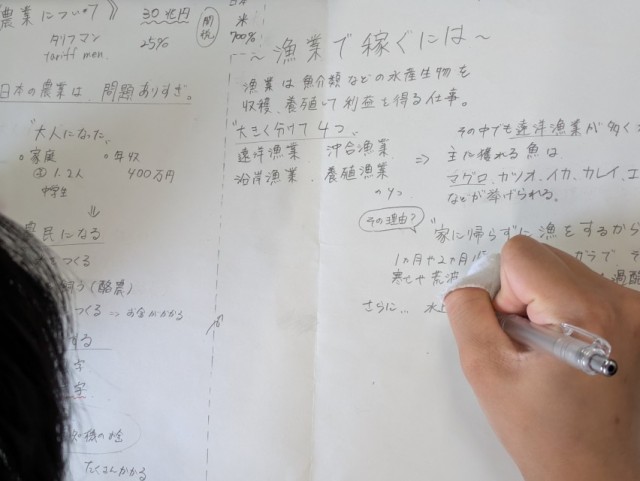 農業について》
30兆円
関税
米
700%
タリフマン
tariff men.
25%
日本の農業は、問題ありすぎ。
"大人になった"
家庭
年収
④ 1.2人
400万円
中学生
農民になる
つくる
(酪農)
つくる ⇒ お金がかかる
する
字
字
たくさんかかる
〜漁業で稼ぐには〜
漁業は魚介類などの水産生物を
収穫、養殖して利益を得る仕事。
"大きく分けて4つ"
遠洋漁業 沖合漁業
沿岸漁業 養殖漁業
の4つ
その中でも遠洋漁業が
⇒ 主に獲れる魚は
マグロ、カツオ、イカ、カレイ、エ
などが挙げられる。
その理由?
"家に帰らずに漁をするから
1ヵ月や2ヵ月
寒さや荒波
さらに…